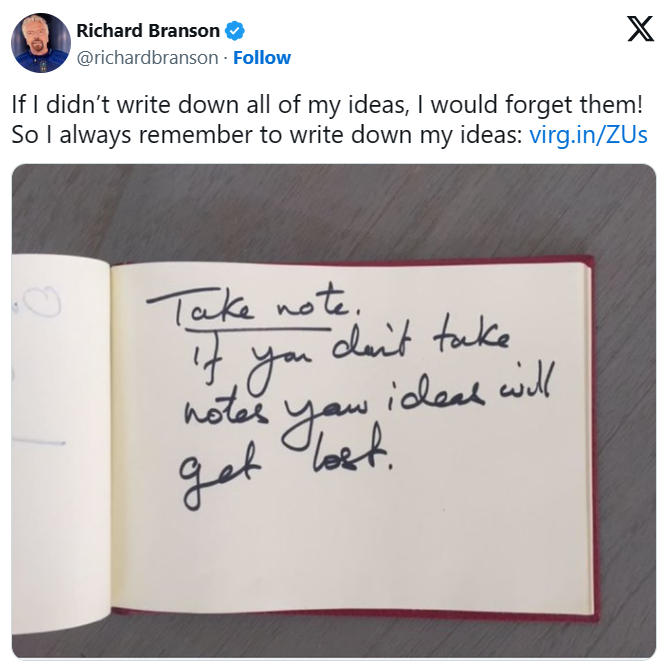 Richard Branson
@richardbranson · Follow
If I didn’t write down all of my ideas, I would forget them!
So I always remember to write down my ideas: virg.in/ZUs
Take note.
If you don't take
notes your ideas will
get lost.